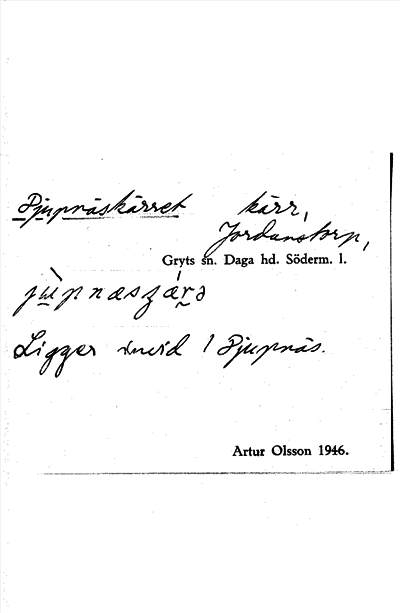 Djupnäskärret kärr,
Jordanstorp,
Gryts sn. Daga hd. Söderm. l.
Ligger invid 1 Djupnäs.
Artur Olsson 1946.